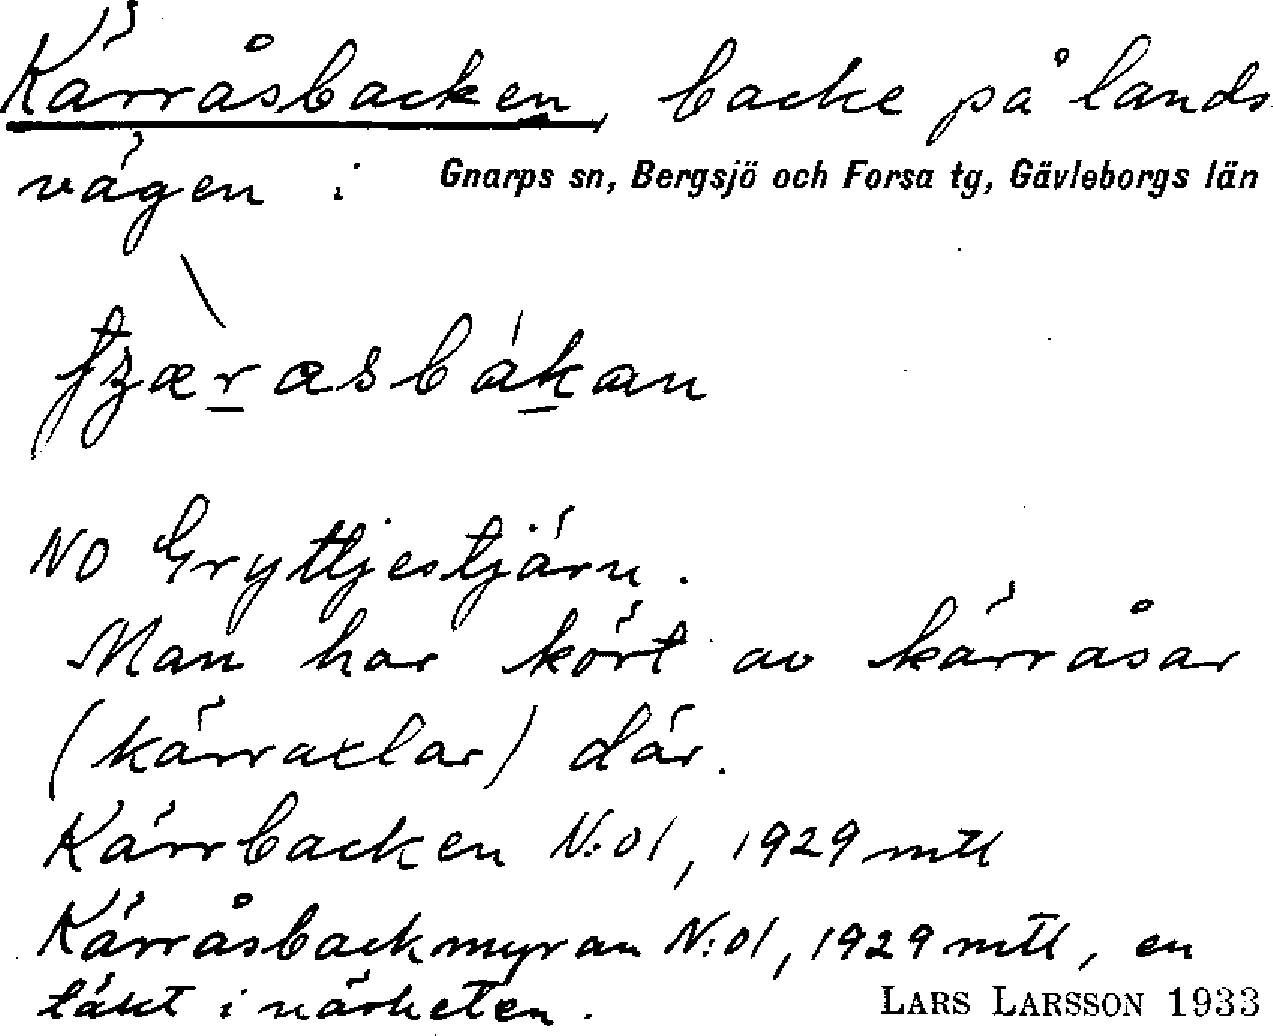 Kärråsbacken, backe på lands
vägen i Gnarps sn, Bergsjö och Forsa tg, Gävleborgs län
NO Gryttjestjärn.
Man har kört av kärråsar
(kärraxlar) där.
Kärrbacken N:o1, 1929 mtl
Kärråsbackmyran N:o1, 1929 mtl, en
täkt i närheten.
LARS LARSSON 1933